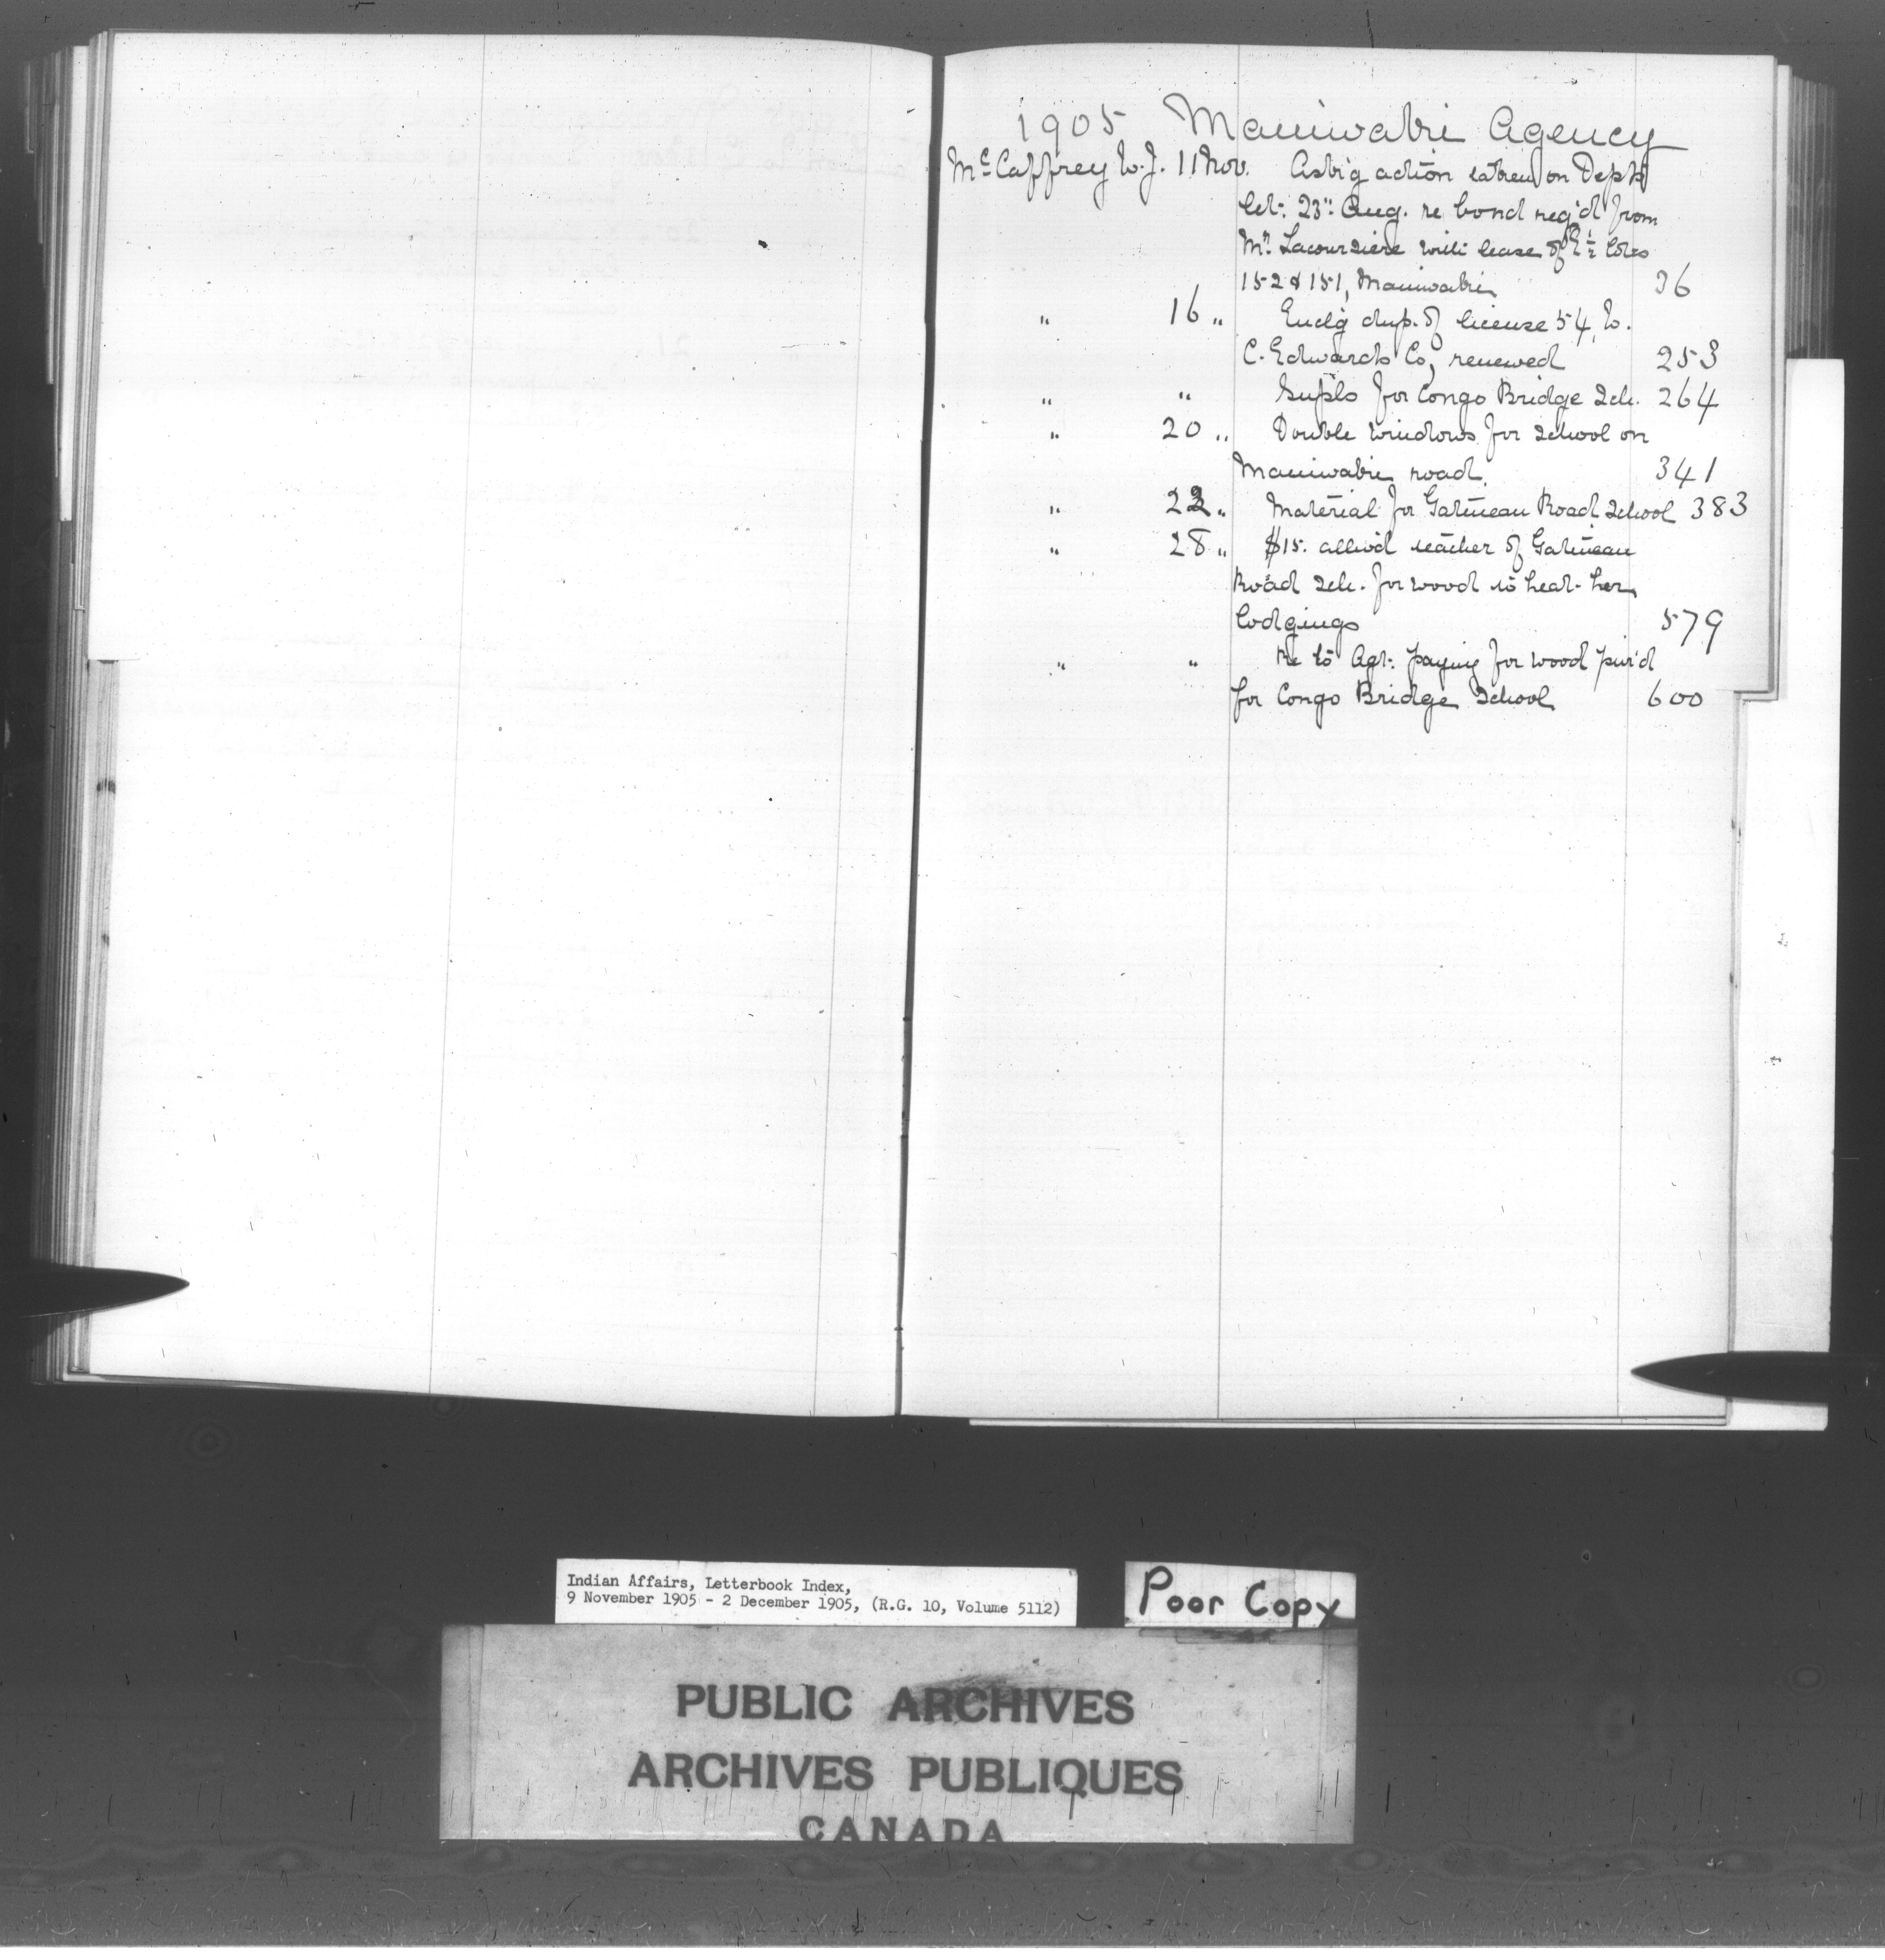 1905 Maniwaki Agency
McCaffrey W.J. 11 Nov. Ask'g action taken on Dept's
let: 23": Aug. re bond req'd from
Mr. Lacoursiere with lease of E½ lots
152 & 151, Maniwaki 36
" 16 " Encl'g dup. of license 54, W.
C. Edwards Co, renewed 253
" " Supls for Congo Bridge Sch. 264
" 20 " Double windows for school on
Maniwaki road. 341
" 22 " Material for Gatineau Road School 383
" 28 " $15. allw'd teacher of Gatineau
Road Sch. for wood to heat her
lodgings 579
" " Re to Agt: paying for wood pur'd
for Congo Bridge School 600
Indian Affairs, Letterbook Index,
9 November 1905 - 2 December 1905, (R.G. 10, Volume 5112)
Poor Copy
PUBLIC ARCHIVES
ARCHIVES PUBLIQUES
CANADA